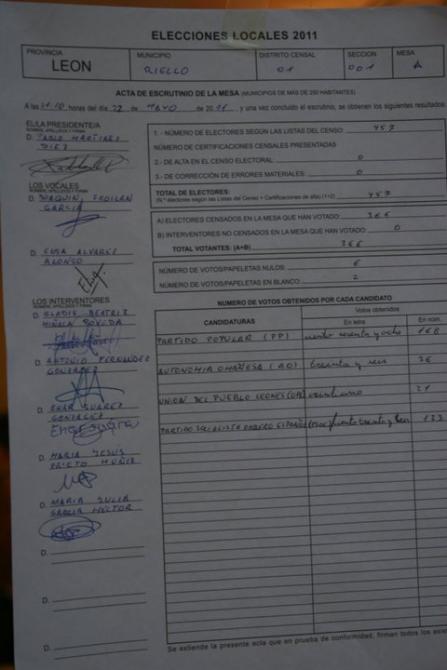 ELECCIONES LOCALES 2011
PROVINCIA
LEON
MUNICIPIO
RIELLO
DISTRITO CENSAL
01
SECCION
001
MESA
A
ACTA DE ESCRUTINIO DE LA MESA (MUNICIPIOS DE MAS DE 250 HABITANTES)
A las horas del día 22 de MAYO de 2011 y una vez concluido el escrutinio, se obtienen los siguientes resultados
EL/LA PRESIDENTE/A
NOMBRE, APELLIDOS Y FIRMA
D. PABLO MARTINEZ
DIEZ
LOS VOCALES
NOMBRE, APELLIDOS Y FIRMA
D. JOAQUIN FROILAN
GARCIA
D. ELISA ALVAREZ
ALONSO
LOS INTERVENTORES
NOMBRE, APELLIDOS Y FIRMA
D. GLADIS BEATRIZ
D. ANTONIO FERNANDEZ
GONZALEZ
D. SUAREZ
GONZALEZ
D. MARIA JESUS
PRIETO MUÑIZ
D. MARIA JULIA
GARCIA HECTOR
D.
D.
D.
1.- NÚMERO DE ELECTORES SEGÚN LAS LISTAS DEL CENSO 457
NÚMERO DE CERTIFICACIONES CENSALES PRESENTADAS
2.- DE ALTA EN EL CENSO ELECTORAL 0
3.- DE CORRECCIÓN DE ERRORES MATERIALES: 0
TOTAL DE ELECTORES: 457
(N.º electores según las Listas del Censo + Certificaciones de alta) (1+2)
A) ELECTORES CENSADOS EN LA MESA QUE HAN VOTADO: 366
B) INTERVENTORES NO CENSADOS EN LA MESA QUE HAN VOTADO: 0
TOTAL VOTANTES: (A+B) 366
NÚMERO DE VOTOS/PAPELETAS NULOS: 6
NÚMERO DE VOTOS/PAPELETAS EN BLANCO: 2
NÚMERO DE VOTOS OBTENIDOS POR CADA CANDIDATO
CANDIDATURAS
Votos obtenidos
En letra
En núm.
PARTIDO POPULAR (PP) ciento sesenta y ocho 168
AUTONOMIA OMAÑESA (AO) treinta y seis 36
UNION DEL PUEBLO LEONES veintiuno 21
PARTIDO SOCIALISTA OBRERO ESPAÑOL ciento treinta y tres 133
Se extiende la presente acta que en prueba de conformidad, firman todos los